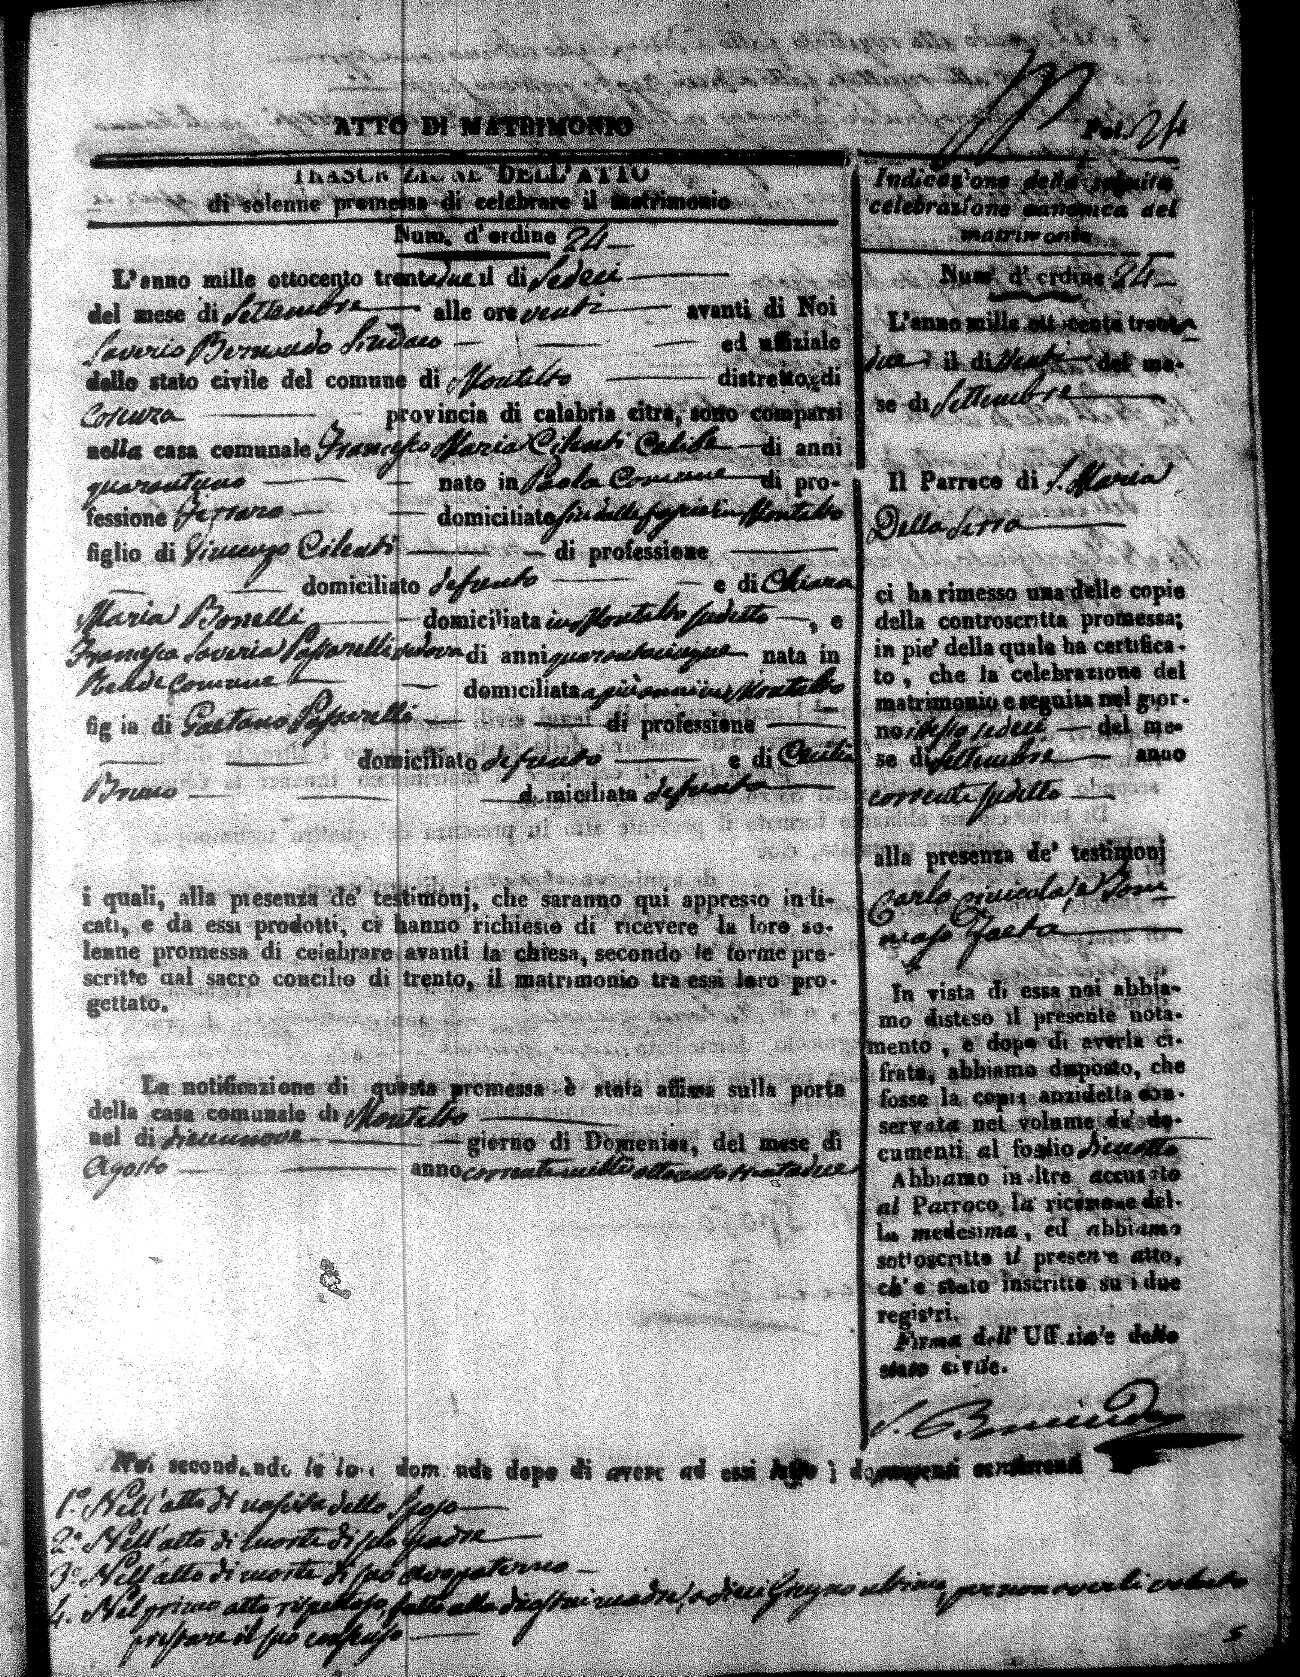 ATTO DI MATRIMONIO
Fol. 24
TRASCRIZIONE DELL'ATTO
di solenne promessa di celebrare il matrimonio
Num. d'ordine 24
L'anno mille ottocento trentadue il di Sedeci
del mese di Settembre alle ore venti avanti di Noi
Saverio Bernardo Sindaco ed uffiziale
dello stato civile del comune di Montalto distretto di
Cosenza provincia di calabria citra, sono comparsi
nella casa comunale Francesco Maria Cilenti Celibe di anni
quarantuno nato in Paola Comune di pro-
fessione Ferraro domiciliato in Montalto
figlio di Vincenzo Cilenti di professione
domiciliato defunto e di Chiara
Maria Bonelli domiciliata in Montalto sudetto , e
Francesca Saveria Passarelli vedova di anni quarantacinque nata in
Rende comune domiciliata Montalto
fig ia di Gaetano Passarelli di professione
domiciliato defunto e di Cecilia
Bruno d miciliata defunta
i quali, alla presenza de' testimonj, che saranno qui appresso indi-
cati, e da essi prodotti, ci hanno richiesto di ricevere la loro so-
lenne promessa di celebrare avanti la chiesa, secondo le forme pre-
scritte dal sacro concilio di trento, il matrimonio tra essi loro pro-
gettato.
La notificazione di questa promessa è stata affissa sulla porta
della casa comunale di Montalto
nel di diecinnove giorno di Domenica, del mese di
Agosto anno corrente mille ottocento trentadue
Noi secondando le loro domande dopo di avere ad essi letto i documenti
1.° Nell'atto di nascita dello sposo
2.° Nell'atto di morte di suo padre
3.° Nell'atto di morte di suo avo paterno
4. Nel primo atto rispettoso, fatto alla di madre, a dieci Giugno ultimo, per non averli voluto
prestare il suo consenso
Indicazione della seguita
celebrazione canonica del
matrimonio
Num. d'ordine 24
L'anno mille ottocento trenta
due il di Venti del me-
se di Settembre
Il Parroco di S. Maria
Della Serra
ci ha rimesso una delle copie
della controscritta promessa;
in pie' della quale ha certifica-
to , che la celebrazione del
matrimonio e seguita nel gior-
no istesso sedeci del me-
se di Settembre anno
corrente sudetto
alla presenza de' testimonj
Carlo e Tom
maso Gaeta
In vista di essa noi abbia-
mo disteso il presente nota-
mento , e dopo di averla ci-
frata, abbiamo disposto, che
fosse la copia anzidetta con-
servata nel volume de' do-
cumenti al foglio diciotto
Abbiamo inoltre accusato
al Parroco la ricezione del-
la medesima, ed abbiamo
sottoscritto il presente atto,
ch' e stato inscritto su i due
registri.
Firma dell' Uffiziale dello
stato civile.
S. Bernardo